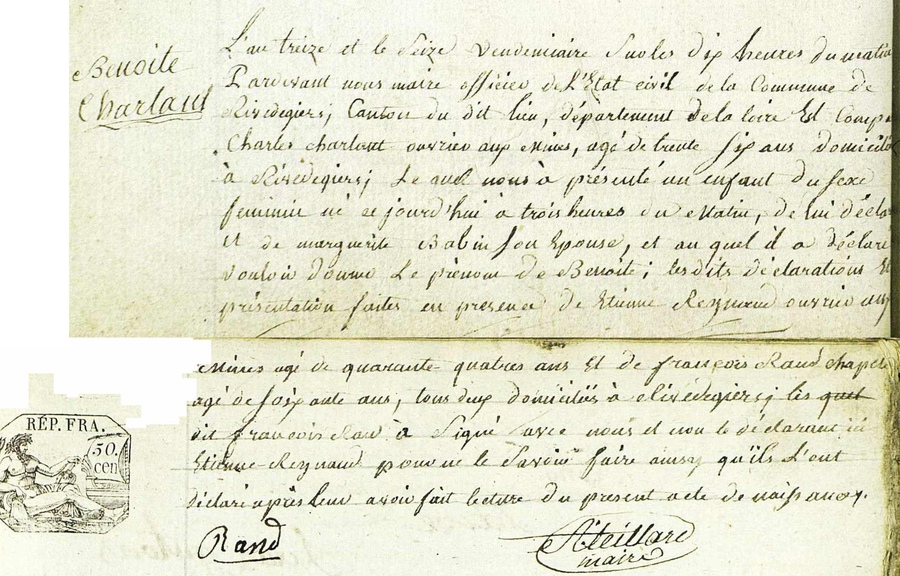 Benoite
Charlaut
L'an treize et le Seize Vendemiaire Sur les dix heures du matin
Pardevant nous maire officier de L'Etat civil de la Commune de
Rivedegiers; Canton du dit lieu, département de la loire Est Comp
Charles charlaut ouvrier aux Mines, agé de trente six ans domicilié
à Rivedegiers; Le quel nous à présenté un enfant du sexe
feminin né ce jourd'hui à trois heures du Matin, de lui décla
et de marguerite Babin son Epouse, et au quel il a déclaré
vouloir donner Le prénom de Benoite; les dits déclarations Et
présentation faites en presence de Etienne Reynaud ouvrier aux
Mines agé de quarante quatres ans Et de françois Rand chapel
agé de soixante ans, tous deux domiciliés à Rivedegiers; les quel
dit françois Rand à Signé avec nous et non le déclarant ni
Etienne Reynaud pour ne le Savoir faire ainsy qu'ils L'ont
déclaré après leur avoir fait lecture du present acte de naissance.
RÉP. FRA.
50.
cen
Rand
maire